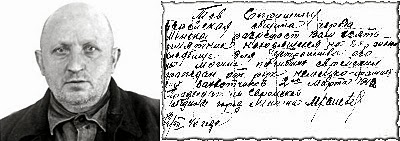 Тов Спришен
Еврейская община города
Минска разрешает Вам взять
памятник находящейся на еврейском
кладбище для установления его
на могиле погибших еврейских
граждан от рук немецко-фашист
ских захватчиков 2го марта 1942
Председатель Еврейской
общины города Минска
46 года